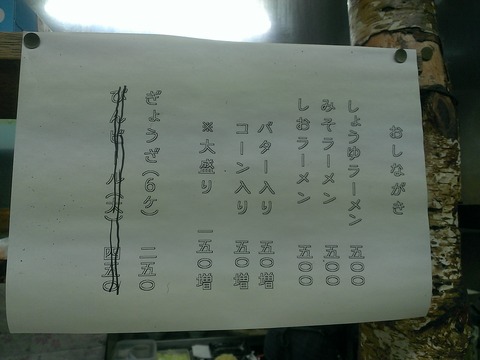 おしながき
しょうゆラーメン 五〇〇
みそラーメン 五〇〇
しおラーメン 五〇〇
バター入り 五〇増
コーン入り 五〇増
※大盛り 一五〇増
ぎょうざ(6ケ) 二五〇
びんビール(大) 四五〇